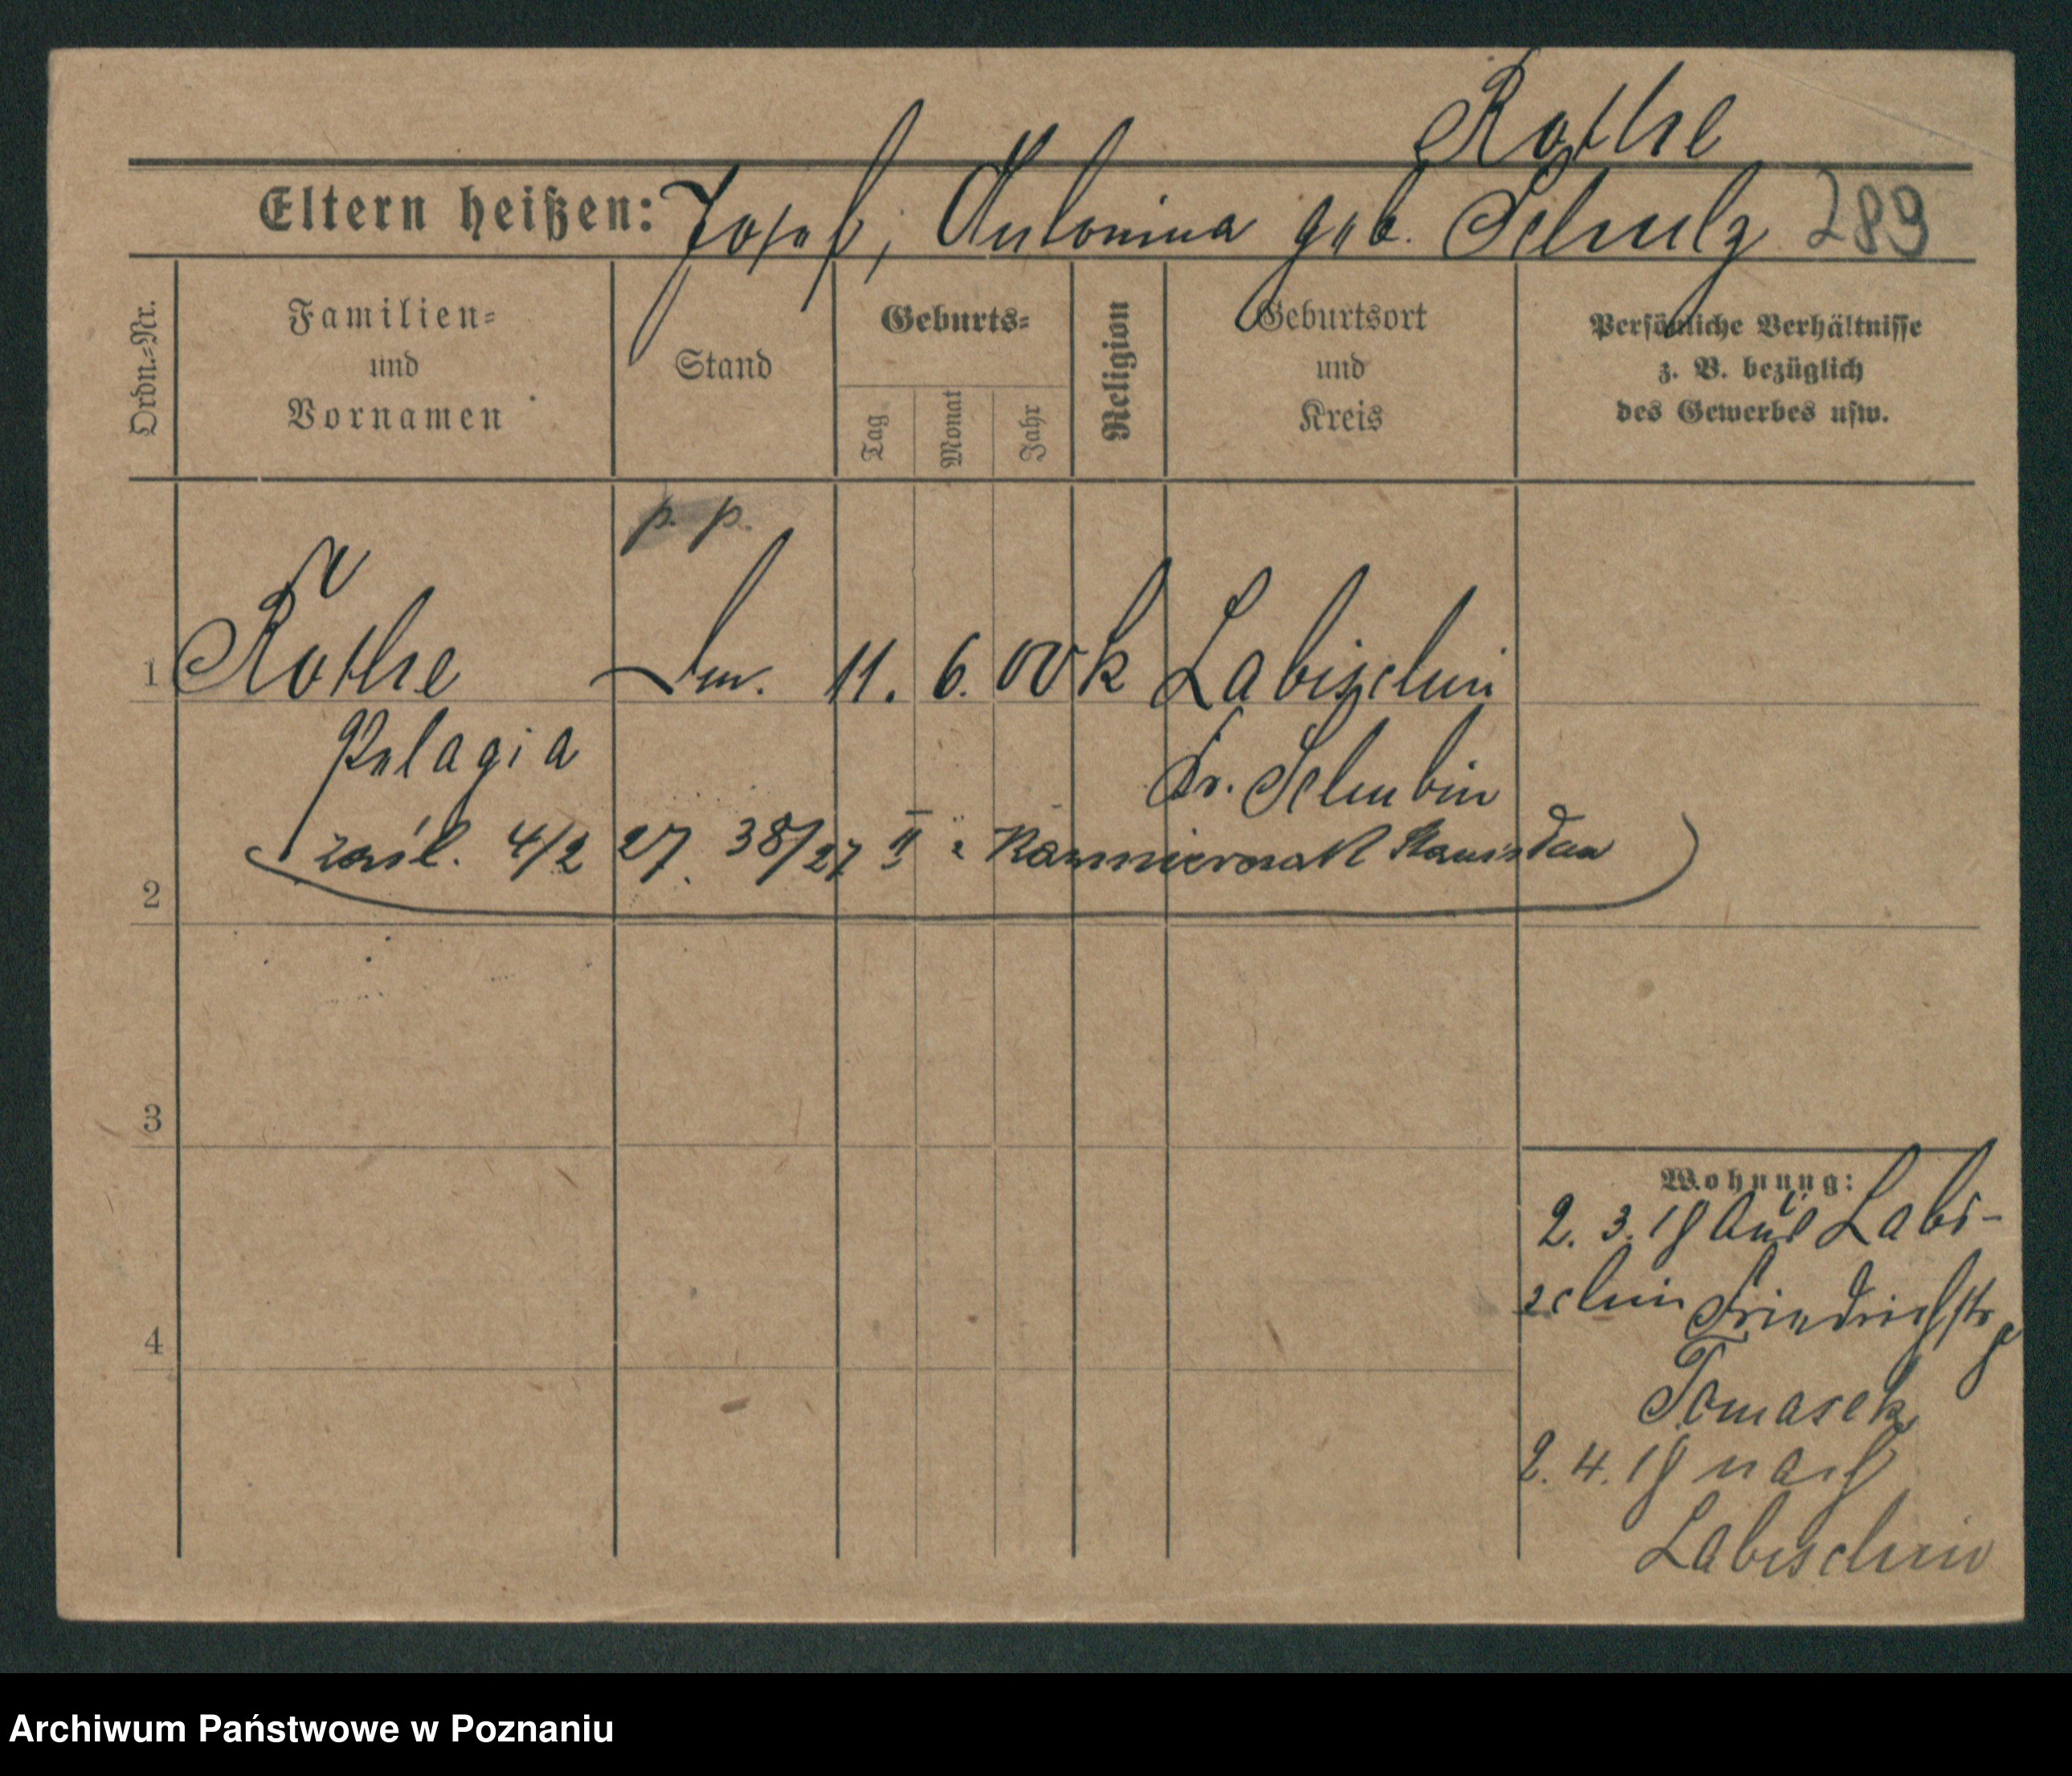 Rothe
Eltern heißen: Josef, Antonina geb. Schulz 289
Ordn.-Nr.
Familien- und Vornamen
Stand
Geburts-
Tag
Monat
Jahr
Religion
Geburtsort und Kreis
Persönliche Verhältnisse z. B. bezüglich des Gewerbes usw.
p. p.
1 Rothe 11. 6. 00 k Labischin
Pelagia Kr. Schubin
zaśl. 4/2 27. 38/27 II z Kazmierczak Stanisław
2
3
4
Wohnung:
2. 3. 18 aus Labi-
schin Friedrichstr
Tomasek
2. 4. 18 nach
Labischin
Archiwum Państwowe w Poznaniu